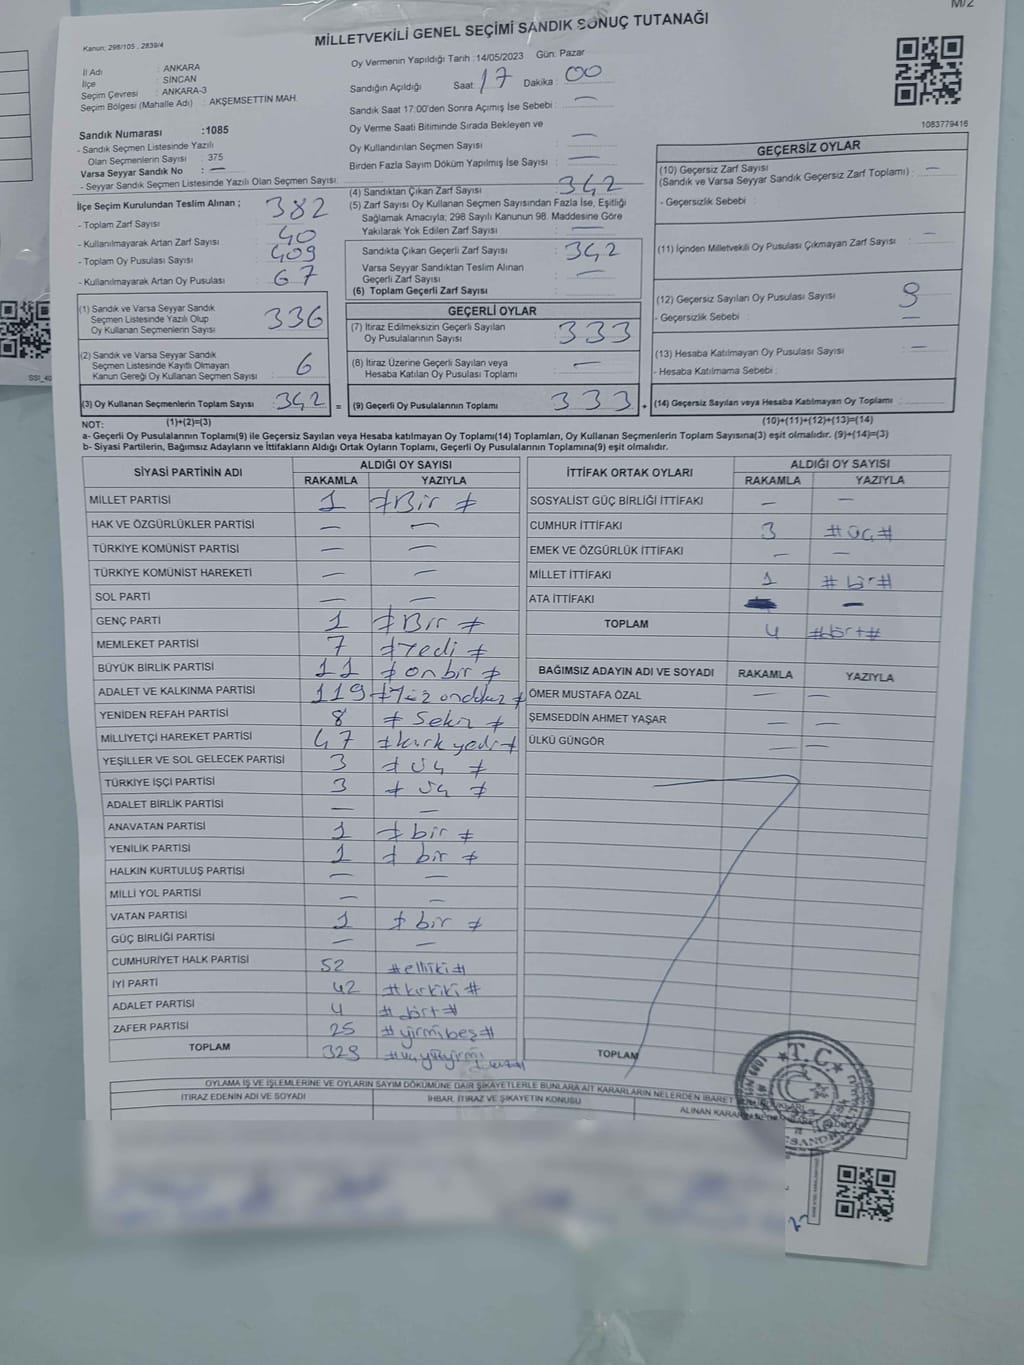 M/2
Kanun: 298/105 , 2839/4
MİLLETVEKİLİ GENEL SEÇİMİ SANDIK SONUÇ TUTANAĞI
İl Adı : ANKARA
İlçe : SİNCAN
Seçim Çevresi : ANKARA-3
Seçim Bölgesi (Mahalle Adı) : AKŞEMSETTİN MAH.
Oy Vermenin Yapıldığı Tarih :14/05/2023 Gün: Pazar
Sandığın Açıldığı Saat : 17 Dakika : 00
Sandık Saat 17:00'den Sonra Açımış İse Sebebi : —
Oy Verme Saati Bitiminde Sırada Bekleyen ve
Oy Kullandırılan Seçmen Sayısı : —
Birden Fazla Sayım Döküm Yapılmış İse Sayısı : —
1083779416
Sandık Numarası :1085
- Sandık Seçmen Listesinde Yazılı
Olan Seçmenlerin Sayısı : 375
Varsa Seyyar Sandık No : —
- Seyyar Sandık Seçmen Listesinde Yazılı Olan Seçmen Sayısı:
İlçe Seçim Kurulundan Teslim Alınan ;
- Toplam Zarf Sayısı : 382
- Kullanılmayarak Artan Zarf Sayısı : 40
- Toplam Oy Pusulası Sayısı : 409
- Kullanılmayarak Artan Oy Pusulası : 67
(1) Sandık ve Varsa Seyyar Sandık
Seçmen Listesinde Yazılı Olup
Oy Kullanan Seçmenlerin Sayısı : 336
(2) Sandık ve Varsa Seyyar Sandık
Seçmen Listesinde Kayıtlı Olmayan
Kanun Gereği Oy Kullanan Seçmen Sayısı : 6
(3) Oy Kullanan Seçmenlerin Toplam Sayısı : 342 =
(4) Sandıktan Çıkan Zarf Sayısı : 342
(5) Zarf Sayısı Oy Kullanan Seçmen Sayısından Fazla İse, Eşitliği
Sağlamak Amacıyla; 298 Sayılı Kanunun 98. Maddesine Göre
Yakılarak Yok Edilen Zarf Sayısı : —
Sandıkta Çıkan Geçerli Zarf Sayısı : 342
Varsa Seyyar Sandıktan Teslim Alınan
Geçerli Zarf Sayısı : —
(6) Toplam Geçerli Zarf Sayısı :
GEÇERLİ OYLAR
(7) İtiraz Edilmeksizin Geçerli Sayılan
Oy Pusulalarının Sayısı : 333
(8) İtiraz Üzerine Geçerli Sayılan veya
Hesaba Katılan Oy Pusulası Toplamı : —
(9) Geçerli Oy Pusulalarının Toplamı : 333 +
GEÇERSİZ OYLAR
(10) Geçersiz Zarf Sayısı
(Sandık ve Varsa Seyyar Sandık Geçersiz Zarf Toplamı) : —
- Geçersizlik Sebebi :
(11) İçinden Milletvekili Oy Pusulası Çıkmayan Zarf Sayısı : —
(12) Geçersiz Sayılan Oy Pusulası Sayısı : 9
- Geçersizlik Sebebi : —
(13) Hesaba Katılmayan Oy Pusulası Sayısı : —
- Hesaba Katılmama Sebebi :
(14) Geçersiz Sayılan veya Hesaba Katılmayan Oy Toplamı :
NOT: (1)+(2)=(3) (10)+(11)+(12)+(13)=(14)
a- Geçerli Oy Pusulalarının Toplamı(9) ile Geçersiz Sayılan veya Hesaba katılmayan Oy Toplamı(14) Toplamları, Oy Kullanan Seçmenlerin Toplam Sayısına(3) eşit olmalıdır. (9)+(14)=(3)
b- Siyasi Partilerin, Bağımsız Adayların ve İttifakların Aldığı Ortak Oyların Toplamı, Geçerli Oy Pusulalarının Toplamına(9) eşit olmalıdır.
SİYASİ PARTİNİN ADI ALDIĞI OY SAYISI
RAKAMLA YAZIYLA
MİLLET PARTİSİ 1 # Bir #
HAK VE ÖZGÜRLÜKLER PARTİSİ — —
TÜRKİYE KOMÜNİST PARTİSİ — —
TÜRKİYE KOMÜNİST HAREKETİ — —
SOL PARTİ — —
GENÇ PARTİ 1 # Bir #
MEMLEKET PARTİSİ 7 # Yedi #
BÜYÜK BİRLİK PARTİSİ 11 # on bir #
ADALET VE KALKINMA PARTİSİ 119 # Yüz ondokuz #
YENİDEN REFAH PARTİSİ 8 # Sekiz #
MİLLİYETÇİ HAREKET PARTİSİ 47 # kırk yedi #
YEŞİLLER VE SOL GELECEK PARTİSİ 3 # üç #
TÜRKİYE İŞÇİ PARTİSİ 3 # üç #
ADALET BİRLİK PARTİSİ — —
ANAVATAN PARTİSİ 1 # bir #
YENİLİK PARTİSİ 1 # bir #
HALKIN KURTULUŞ PARTİSİ — —
MİLLİ YOL PARTİSİ — —
VATAN PARTİSİ 1 # bir #
GÜÇ BİRLİĞİ PARTİSİ — —
CUMHURİYET HALK PARTİSİ 52 #elliiki#
İYİ PARTİ 42 #kırkiki#
ADALET PARTİSİ 4 # dört#
ZAFER PARTİSİ 25 #yirmibeş#
TOPLAM 329
İTTİFAK ORTAK OYLARI ALDIĞI OY SAYISI
RAKAMLA YAZIYLA
SOSYALİST GÜÇ BİRLİĞİ İTTİFAKI — —
CUMHUR İTTİFAKI 3 #üç#
EMEK VE ÖZGÜRLÜK İTTİFAKI — —
MİLLET İTTİFAKI 1 # bir#
ATA İTTİFAKI —
TOPLAM 4 #dört#
BAĞIMSIZ ADAYIN ADI VE SOYADI RAKAMLA YAZIYLA
ÖMER MUSTAFA ÖZAL — —
ŞEMSEDDİN AHMET YAŞAR — —
ÜLKÜ GÜNGÖR — —
TOPLAM
OYLAMA İŞ VE İŞLEMLERİNE VE OYLARIN SAYIM DÖKÜMÜNE DAİR ŞİKAYETLERLE BUNLARA AİT KARARLARIN NELERDEN İBARET
İTİRAZ EDENİN ADI VE SOYADI İHBAR, İTİRAZ VE ŞİKAYETİN KONUSU ALINAN KARAR
T.C.